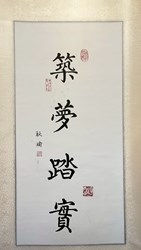 築夢踏實